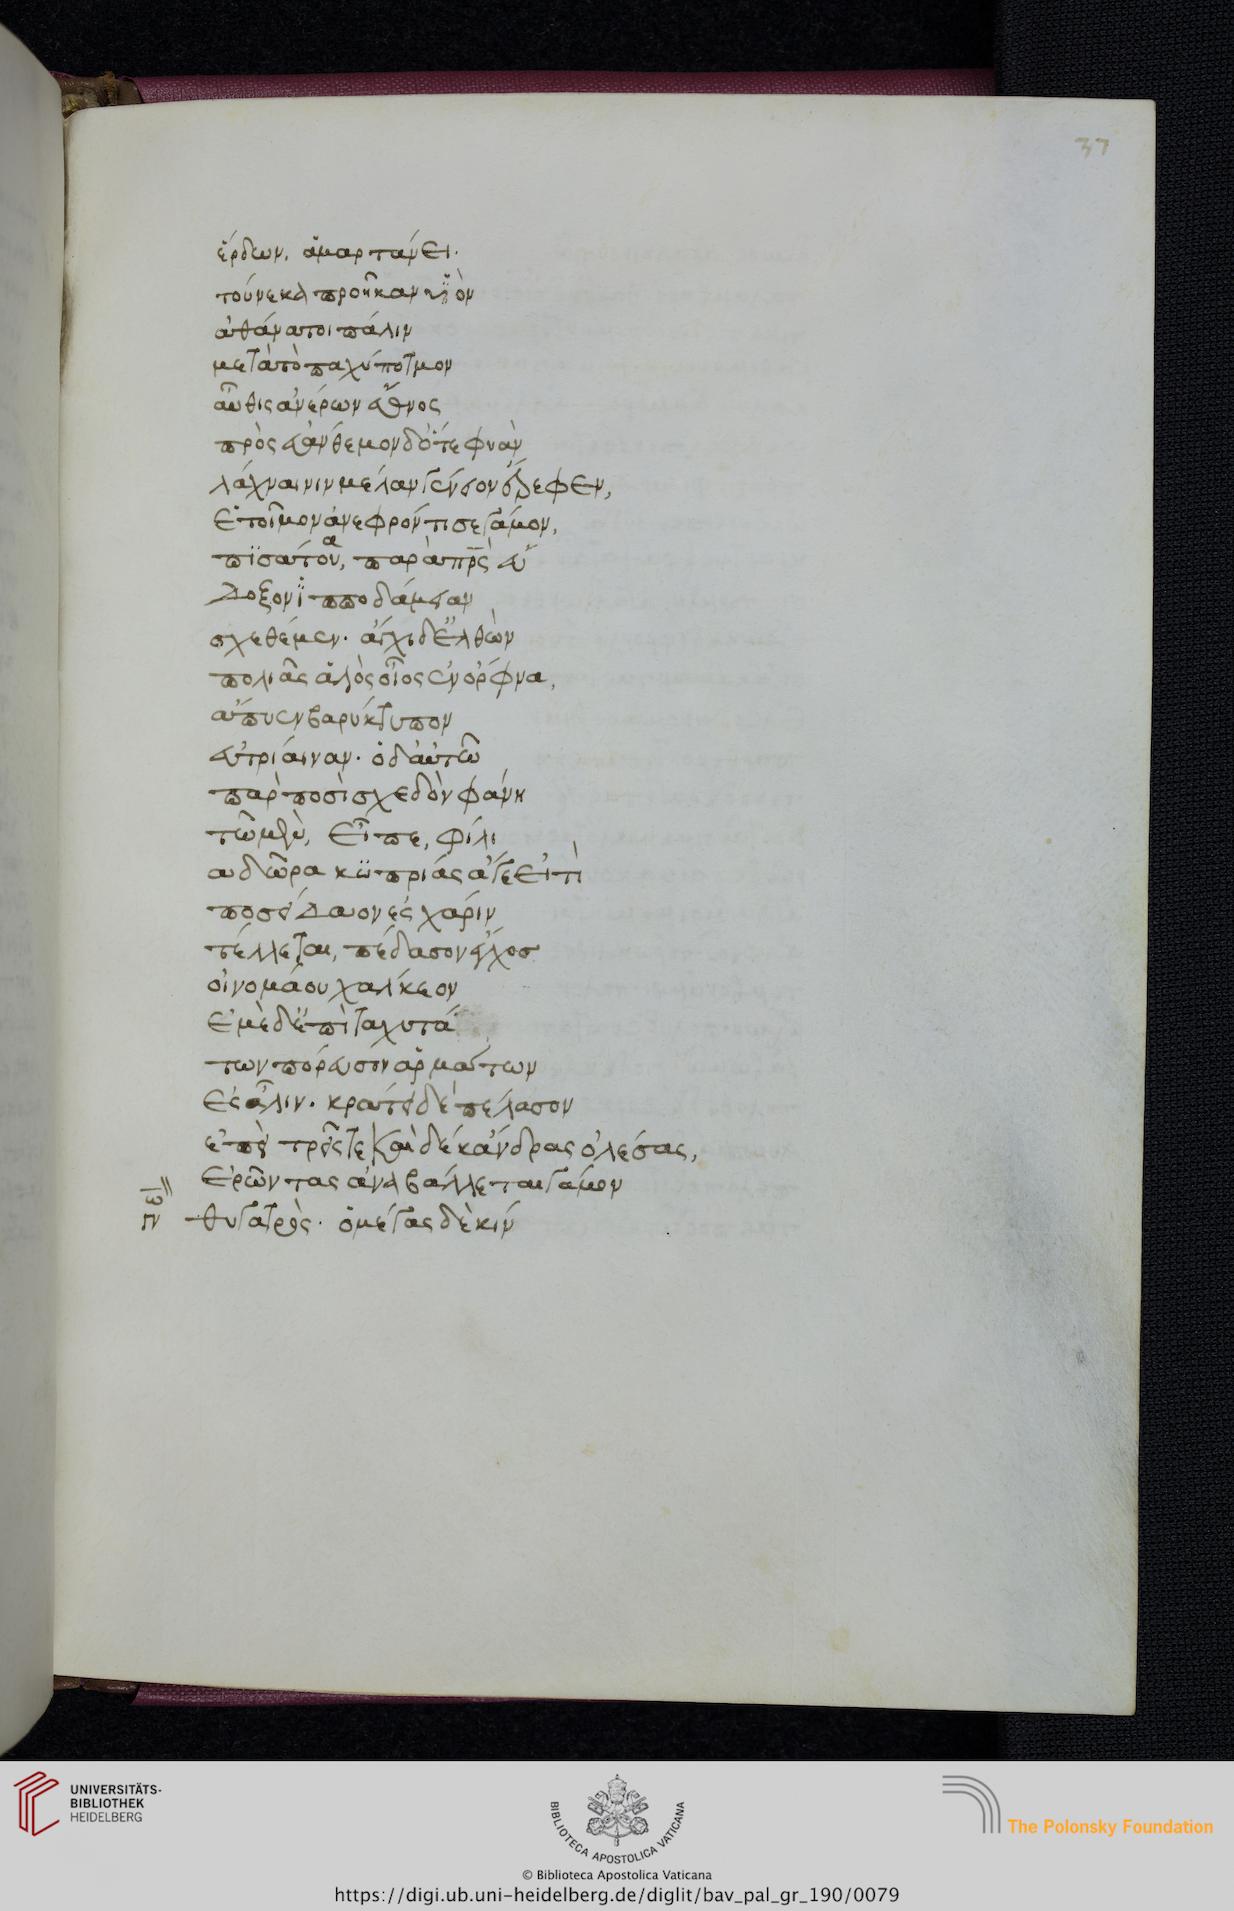 37
ἔρδων. ἁμαρτάνει.
τούνεκα προῆκαν υἱὸν
ἀθάνατοι πάλιν
μετὰ τὸ ταχύποτμον
αὖθις ἀνέρων ἔθνος
πρὸς εὐάνθεμον δ' ὅτε φυὰν
λάχναι νιν μέλαν γένειον ἔρεφεν,
ἑτοῖμον ἀνεφρόντισε γάμον,
πισάτου, παρὰ πρς εὔ
δοξον ἱπποδάμειαν
σχεθέμεν. ἄγχι δ' ἐλθὼν
πολιᾶς ἁλὸς οἶος ἐν ὄρφνα,
ἄπυεν βαρύκτυπον
εὐτρίαιναν. ὁ δ' αὐτῶ
πὰρ ποσὶ σχεδὸν φάνη
τῶ μὲν, εἶπε, φίλι
α δῶρα κυπρίας ἄγε εἴ τι
ποσείδαον ἐς χάριν
τέλλεται, πέδασον ἔγχος
οἰνομάου χάλκεον
ἐμὲ δ' ἐπὶ ταχυτά
των πόρευσον ἁρμάτων
ἐς ἆλιν. κράτει δὲ πέλασον
ἐπεὶ τρεῖς τε καὶ δέκ' ἄνδρας ὀλέσας,
ἐρῶντας ἀναβάλλεται γάμον
θυγατρός. ὁ μέγας δὲ κίν
UNIVERSITÄTS-
BIBLIOTHEK
HEIDELBERG
BIBLIOTECA APOSTOLICA VATICANA
The Polonsky Foundation
© Biblioteca Apostolica Vaticana
https://digi.ub.uni-heidelberg.de/diglit/bav_pal_gr_190/0079